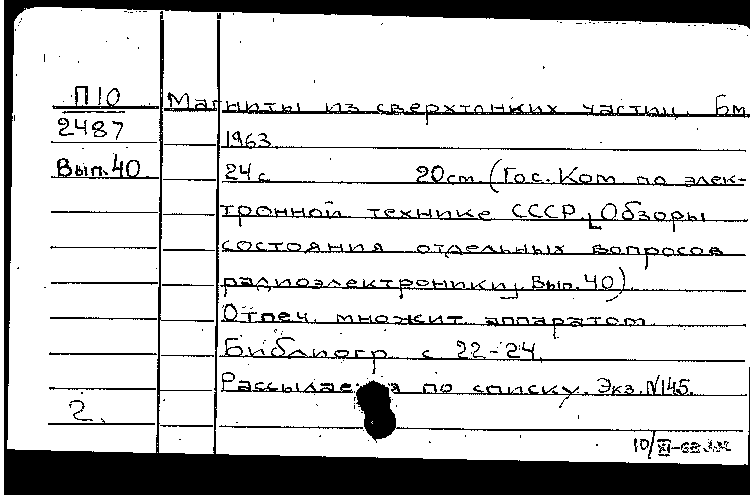 П10 Магниты из сверхтонких частиц. Бм
2487 1963
Вып.40 24 с 20 см (Гос. Ком по элек-
тронной технике СССР. Обзоры
состояния отдельных вопросов
радиоэлектроники, Вып. 40).
Отпеч. множит аппаратом
Библиогр с 22-24.
Рассылается по списку. Экз. №145.
2.
10/XI-68